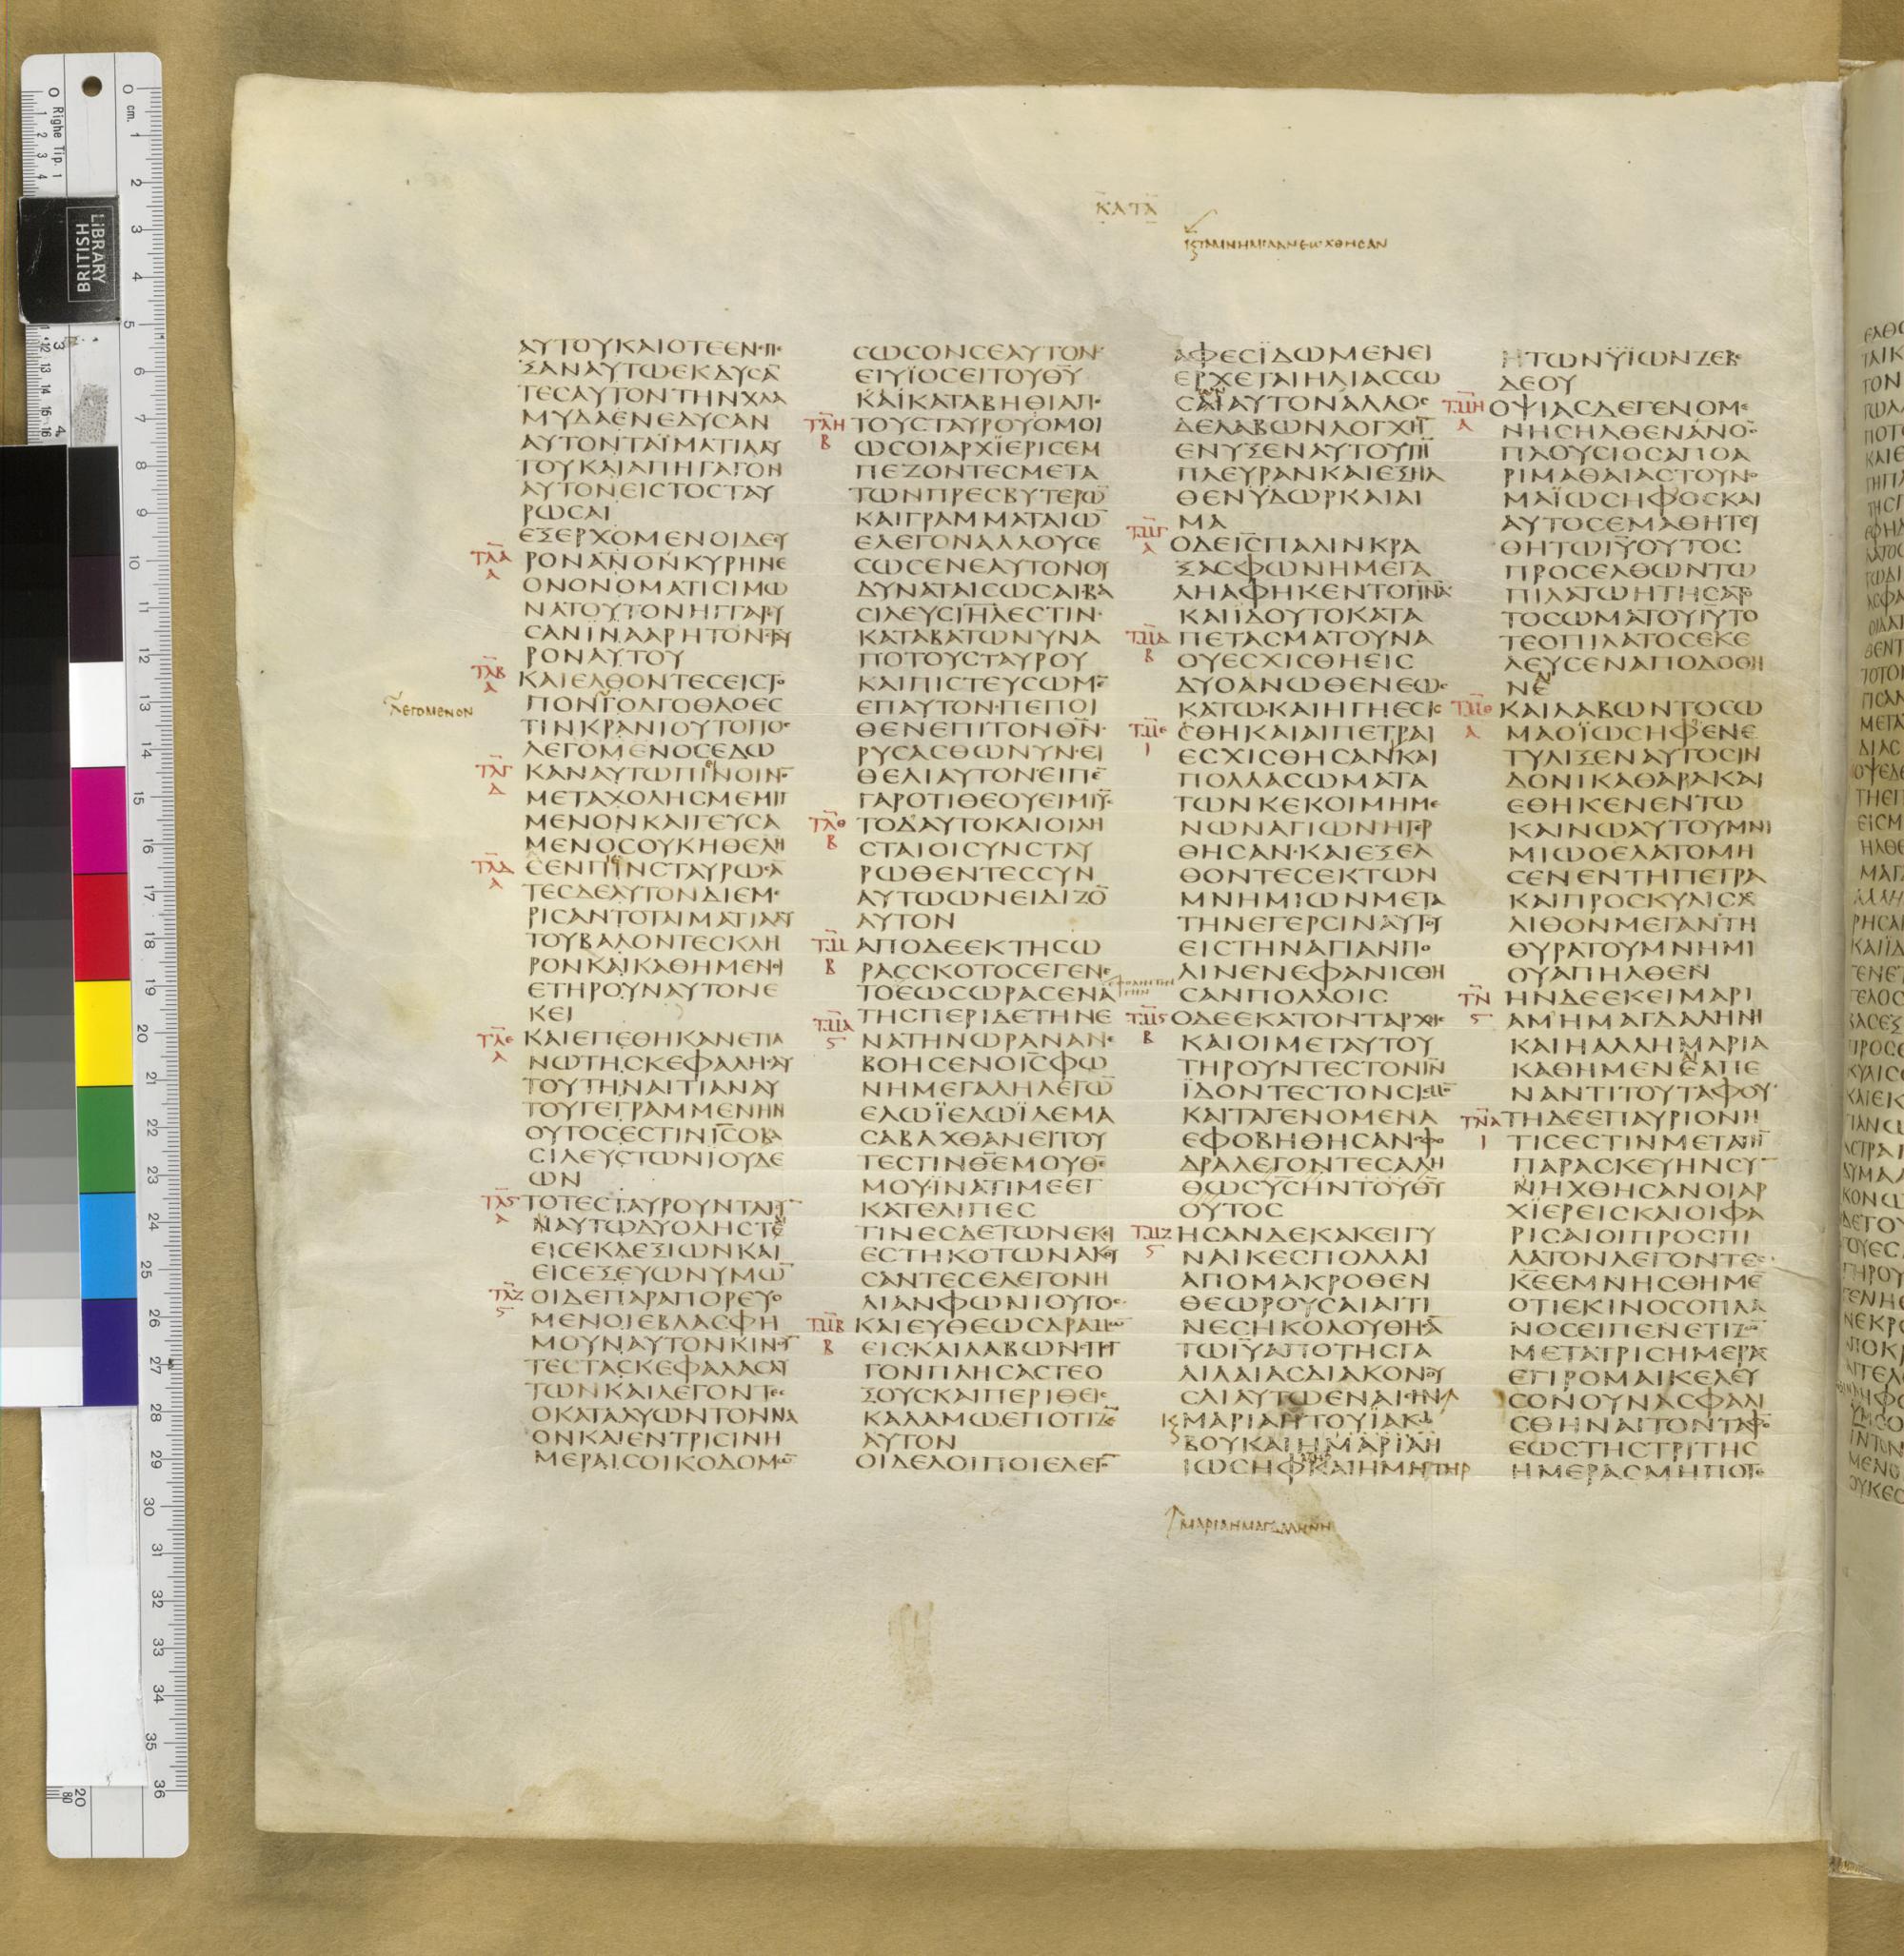 ΚΑΤΑ
ΚΑΙΤΑΜΝΗΜΙΑΑΝΕΩΧΘΗCΑΝ
ΑΥΤΟΥΚΑΙΟΤΕΕΝΕΠΕ
ΞΑΝΑΥΤΩΕΚΔΥCΑ
ΤΕCΑΥΤΟΝΤΗΝΧΛΑ
ΜΥΔΑΕΝΕΔΥCΑΝ
ΑΥΤΟΝΤΑΪΜΑΤΙΑΑΥ
ΤΟΥΚΑΙΑΠΗΓΑΓΟΝ
ΑΥΤΟΝΕΙCΤΟCΤΑΥ
ΡΩCΑΙ
ΕΞΕΡΧΟΜΕΝΟΙΔΕΥ
ΤΛΑ Α
ΡΟΝΑΝΟΝΚΥΡΗΝΕ
ΟΝΟΝΟΜΑΤΙCΙΜΩ
ΝΑΤΟΥΤΟΝΗΓΓΑΡΥ
CΑΝΙΝΑΑΡΗΤΟΝCΤΑΥ
ΡΟΝΑΥΤΟΥ
ΤΛΒ Α
ΚΑΙΕΛΘΟΝΤΕCΕΙCΤΟ
ΛΕΓΟΜΕΝΟΝ
ΠΟΝΓΟΛΓΟΘΑΟΕC
ΤΙΝΚΡΑΝΙΟΥΤΟΠΟC
ΛΕΓΟΜΕΝΟCΕΔΩ
ΤΛΓ Δ
ΚΑΝΑΥΤΩΠΙΝΟΙΝΟΝ
ΜΕΤΑΧΟΛΗCΜΕΜΙΓ
ΜΕΝΟΝΚΑΙΓΕΥCΑ
ΜΕΝΟCΟΥΚΗΘΕΛΗ
ΤΛΔ Α
CΕΝΠΙΝCΤΑΥΡΩCΑ
ΤΕCΔΕΑΥΤΟΝΔΙΕΜΕ
ΡΙCΑΝΤΟΤΑΙΜΑΤΙΑΑΥ
ΤΟΥΒΑΛΟΝΤΕCΚΛΗ
ΡΟΝΚΑΙΚΑΘΗΜΕΝΟΙ
ΕΤΗΡΟΥΝΑΥΤΟΝΕ
ΚΕΙ
ΤΛΕ Α
ΚΑΙΕΠΕΘΗΚΑΝΕΠΑ
ΝΩΤΗCΚΕΦΑΛΗCΑΥ
ΤΟΥΤΗΝΑΙΤΙΑΝΑΥ
ΤΟΥΓΕΓΡΑΜΜΕΝΗΝ
ΟΥΤΟCΕCΤΙΝΙCΟΒΑ
CΙΛΕΥCΤΩΝΙΟΥΔΕ
ΩΝ
ΤΛϚ Α
ΤΟΤΕCΤΑΥΡΟΥΝΤΑΙCΥ
ΝΑΥΤΩΔΥΟΛΗCΤΕ
ΕΙCΕΚΔΕΞΙΩΝΚΑΙ
ΕΙCΕΞΕΥΩΝΥΜΩ
ΤΛΖ Ϛ
ΟΙΔΕΠΑΡΑΠΟΡΕΥΟ
ΜΕΝΟΙΕΒΛΑCΦΗ
ΜΟΥΝΑΥΤΟΝΚΙΝΟΥ
ΤΕCΤΑCΚΕΦΑΛΑCΑΥ
ΤΩΝΚΑΙΛΕΓΟΝΤΕC
ΟΚΑΤΑΛΥΩΝΤΟΝΝΑ
ΟΝΚΑΙΕΝΤΡΙCΙΝΗ
ΜΕΡΑΙCΟΙΚΟΔΟΜΩ
CΩCΟΝCΕΑΥΤΟΝ
ΕΙΥΪΟCΕΙΤΟΥΘΥ
ΚΑΙΚΑΤΑΒΗΘΙΑΠΟ
ΤΛΗ Β
ΤΟΥCΤΑΥΡΟΥΟΜΟΙ
ΩCΟΙΑΡΧΪΕΡΙCΕΜ
ΠΕΖΟΝΤΕCΜΕΤΑ
ΤΩΝΠΡΕCΒΥΤΕΡΩ
ΚΑΙΓΡΑΜΜΑΤΑΙΩ
ΕΛΕΓΟΝΑΛΛΟΥCΕ
CΩCΕΝΕΑΥΤΟΝΟΥ
ΔΥΝΑΤΑΙCΩCΑΙΒΑ
CΙΛΕΥCΙΗΛΕCΤΙΝ
ΚΑΤΑΒΑΤΩΝΥΝΑ
ΠΟΤΟΥCΤΑΥΡΟΥ
ΚΑΙΠΙCΤΕΥCΩΜΕ
ΕΠΑΥΤΟΝΠΕΠΟΙ
ΘΕΝΕΠΙΤΟΝΘΝ
ΡΥCΑCΘΩΝΥΝΕΙ
ΘΕΛΙΑΥΤΟΝΕΙΠΕ
ΓΑΡΟΤΙΘΕΟΥΕΙΜΙΥΣ
ΤΛΘ Β
ΤΟΔΑΥΤΟΚΑΙΟΙΛΗ
CΤΑΙΟΙCΥΝCΤΑΥ
ΡΩΘΕΝΤΕCCΥΝ
ΑΥΤΩΩΝΕΙΔΙΖΟ
ΑΥΤΟΝ
ΤΜ Β
ΑΠΟΔΕΕΚΤΗCΩ
ΡΑCCΚΟΤΟCΕΓΕΝΕ
ΤΟΕΩCΩΡΑCΕΝΑ
ΤΗCΠΕΡΙΔΕΤΗΝΕ
ΤΜΑ Ϛ
ΝΑΤΗΝΩΡΑΝΑΝΕ
ΒΟΗCΕΝΟΙCΦΩ
ΝΗΜΕΓΑΛΗΛΕΓΩ
ΕΛΩΪΕΛΩΪΛΕΜΑ
CΑΒΑΧΘΑΝΕΙΤΟΥ
ΤΕCΤΙΝΘΕΜΟΥΘΕ
ΜΟΥΪΝΑΤΙΜΕΕΓ
ΚΑΤΕΛΙΠΕC
ΤΙΝΕCΔΕΤΩΝΕΚΙ
ΕCΤΗΚΟΤΩΝΑΚΟΥ
CΑΝΤΕCΕΛΕΓΟΝΗ
ΛΙΑΝΦΩΝΙΟΥΤΟC
ΤΜΒ Β
ΚΑΙΕΥΘΕΩCΔΡΑΜΩ
ΕΙCΚΑΙΛΑΒΩΝCΠΓ
ΓΟΝΠΛΗCΑCΤΕΟ
ΞΟΥCΚΑΙΠΕΡΙΘΕΙC
ΚΑΛΑΜΩΕΠΟΤΙΖΕ
ΑΥΤΟΝ
ΟΙΔΕΛΟΙΠΟΙΕΛΕΓΟ
ΑΦΕCΪΔΩΜΕΝΕΙ
ΕΡΧΕΤΑΙΗΛΙΑCCΩ
CΑΙΑΥΤΟΝΑΛΛΟC
ΔΕΛΑΒΩΝΛΟΓΧΗ
ΕΝΥΞΕΝΑΥΤΟΥΤΗ
ΠΛΕΥΡΑΝΚΑΙΕΞΗΛ
ΘΕΝΥΔΩΡΚΑΙΑΙ
ΜΑ
ΤΜΓ Α
ΟΔΕΙCΠΑΛΙΝΚΡΑ
ΞΑCΦΩΝΗΜΕΓΑ
ΛΗΑΦΗΚΕΝΤΟΠΝΑ
ΚΑΙΪΔΟΥΤΟΚΑΤΑ
ΤΜΔ Β
ΠΕΤΑCΜΑΤΟΥΝΑ
ΟΥΕCΧΙCΘΗΕΙC
ΔΥΟΑΝΩΘΕΝΕΩC
ΚΑΤΩΚΑΙΗΓΗΕCΙC
ΤΜΕ Ι
CΘΗΚΑΙΑΙΠΕΤΡΑΙ
ΕCΧΙCΘΗCΑΝΚΑΙ
ΠΟΛΛΑCΩΜΑΤΑ
ΤΩΝΚΕΚΟΙΜΗΜΕ
ΝΩΝΑΓΙΩΝΗΓΕΡ
ΘΗCΑΝΚΑΙΕΞΕΛ
ΘΟΝΤΕCΕΚΤΩΝ
ΜΝΗΜΙΩΝΜΕΤΑ
ΤΗΝΕΓΕΡCΙΝΑΥΤΟΥ
ΕΙCΤΗΝΑΓΙΑΝΠΟ
ΛΙΝΕΝΕΦΑΝΙCΘΗ
CΑΝΠΟΛΛΟΙC
ΤΜϚ Β
ΟΔΕΕΚΑΤΟΝΤΑΡΧΗC
ΚΑΙΟΙΜΕΤΑΥΤΟΥ
ΤΗΡΟΥΝΤΕCΤΟΝΙΝ
ΪΔΟΝΤΕCΤΟΝCΙCΜΟ
ΚΑΙΤΑΓΕΝΟΜΕΝΑ
ΕΦΟΒΗΘΗCΑΝCΦΟ
ΔΡΑΛΕΓΟΝΤΕCΑΛΗ
ΘΩCΥCΗΝΤΟΥΘΥ
ΟΥΤΟC
ΤΜΖ Ϛ
ΗCΑΝΔΕΚΑΚΕΙΓΥ
ΝΑΙΚΕCΠΟΛΛΑΙ
ΑΠΟΜΑΚΡΟΘΕΝ
ΘΕΩΡΟΥCΑΙΑΙΤΙ
ΝΕCΗΚΟΛΟΥΘΗCΑ
ΤΩΙΥΑΠΟΤΗCΓΑ
ΛΙΛΑΙΑCΔΙΑΚΟΝΟΥ
CΑΙΑΥΤΩΕΝΑΙCΗΝ
ΜΑΡΙΑΗΤΟΥΪΑΚΩ
ΒΟΥΚΑΙΗΜΑΡΙΑΗ
ΙΩCΗΦΚΑΙΗΜΗΤΗΡ
ΜΑΡΙΑΗΜΑΓΔΑΛΗΝΗ
ΗΤΩΝΫΪΩΝΖΕΒΕ
ΔΕΟΥ
ΤΜΗ Α
ΟΨΙΑCΔΕΓΕΝΟΜΕ
ΝΗCΗΛΘΕΝΑΝΟC
ΠΛΟΥCΙΟCΑΠΟΑ
ΡΙΜΑΘΑΙΑCΤΟΥΝΟ
ΜΑΪΩCΗΦΟCΚΑΙ
ΑΥΤΟCΕΜΑΘΗΤΕΥ
ΘΗΤΩΙΥΟΥΤΟC
ΠΡΟCΕΛΘΩΝΤΩ
ΠΙΛΑΤΩΗΤΗCΑΤΟ
ΤΟCΩΜΑΤΟΥΙΥΤΟ
ΤΕΟΠΙΛΑΤΟCΕΚΕ
ΛΕΥCΕΝΑΠΟΔΟΘΗ
ΝΕ
ΤΜΘ Α
ΚΑΙΛΑΒΩΝΤΟCΩ
ΜΑΟΪΩCΗΦΕΝΕ
ΤΥΛΙΞΕΝΑΥΤΟCΙΝ
ΔΟΝΙΚΑΘΑΡΑΚΑΙ
ΕΘΗΚΕΝΕΝΤΩ
ΚΑΙΝΩΑΥΤΟΥΜΝΗ
ΜΙΩΟΕΛΑΤΟΜΗ
CΕΝΕΝΤΗΠΕΤΡΑ
ΚΑΙΠΡΟCΚΥΛΙCΑC
ΛΙΘΟΝΜΕΓΑΝΤΗ
ΘΥΡΑΤΟΥΜΝΗΜΙ
ΟΥΑΠΗΛΘΕΝ
ΤΝ Ϛ
ΗΝΔΕΕΚΕΙΜΑΡΙ
ΑΜΗΜΑΓΔΑΛΗΝΗ
ΚΑΙΗΑΛΛΗΜΑΡΙΑ
ΚΑΘΗΜΕΝΕΑΠΕ
ΝΑΝΤΙΤΟΥΤΑΦΟΥ
ΤΝΑ Ι
ΤΗΔΕΕΠΑΥΡΙΟΝΗ
ΤΙCΕCΤΙΝΜΕΤΑΤΗ
ΠΑΡΑCΚΕΥΗΝCΥ
ΝΗΧΘΗCΑΝΟΙΑΡ
ΧΪΕΡΕΙCΚΑΙΟΙΦΑ
ΡΙCΑΙΟΙΠΡΟCΠΙ
ΛΑΤΟΝΛΕΓΟΝΤΕC
ΚΕΕΜΝΗCΘΗΜΕ
ΟΤΙΕΚΙΝΟCΟΠΛΑ
ΝΟCΕΙΠΕΝΕΤΙΖΩ
ΜΕΤΑΤΡΙCΗΜΕΡΑC
ΕΓΙΡΟΜΑΙΚΕΛΕΥ
CΟΝΟΥΝΑCΦΑΛΙ
CΘΗΝΑΙΤΟΝΤΑΦΟ
ΕΩCΤΗCΤΡΙΤΗC
ΗΜΕΡΑCΜΗΠΟΤΕ